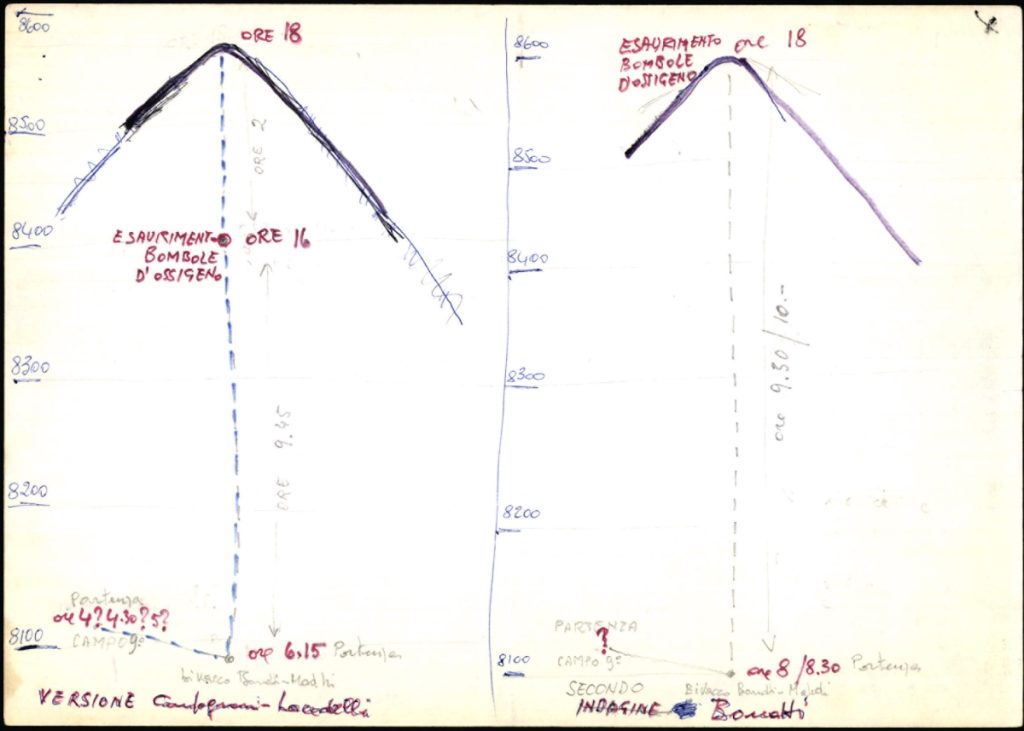 8600
ORE 18
8500
ORE 2
8400
ESAURIMENTO
BOMBOLE
D'OSSIGENO
ORE 16
8300
ORE 9.45
8200
Partenza
ore 4? 4.30? 5?
8100
CAMPO 9°
ore 6.15 Partenza
bivacco Bonatti-Mahdi
VERSIONE Compagnoni-Lacedelli
8600
ESAURIMENTO
BOMBOLE
D'OSSIGENO
ore 18
8500
8400
ore 9.30/10.-
8300
8200
PARTENZA
?
8100
CAMPO 9°
ore 8/8.30 Partenza
Bivacco Bonatti-Mahdi
SECONDO
INDAGINE Bonatti